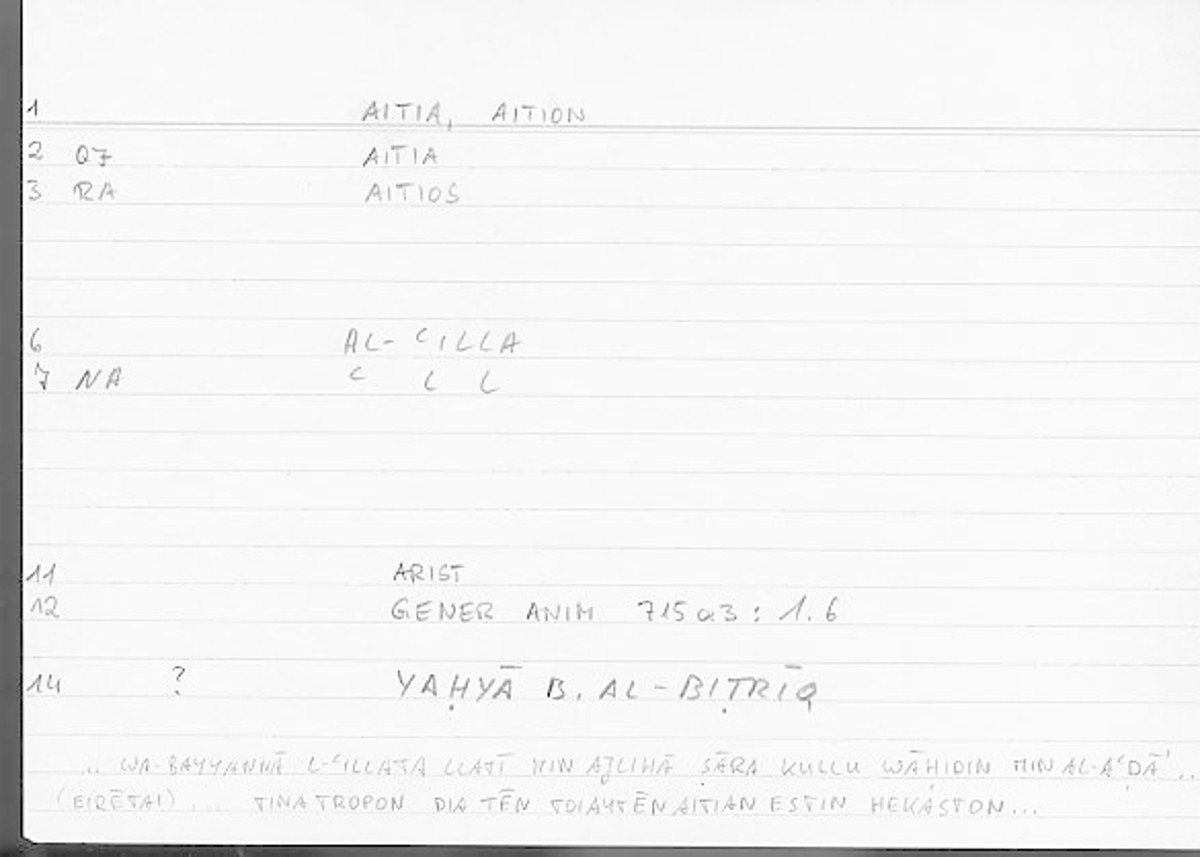 1 AITIA, AITION
2 Q7 AITIA
3 RA AITIOS
6 AL-ʿILLA
7 NA ʿ L L
11 ARIST
12 GENER ANIM 715a3 : 1.6
14 ? YAḤYĀ B. AL-BIṬRĪQ
... WA-BAYYANNĀ L-ʿILLATA LLATĪ MIN AJLIHĀ ṢĀRA KULLU WĀḤIDIN MIN AL-AʿḌĀʾ ..
(EIRĒTAI) ... TINA TROPON DIA TĒN TOIAYTĒN AITIAN ESTIN HEKASTON...